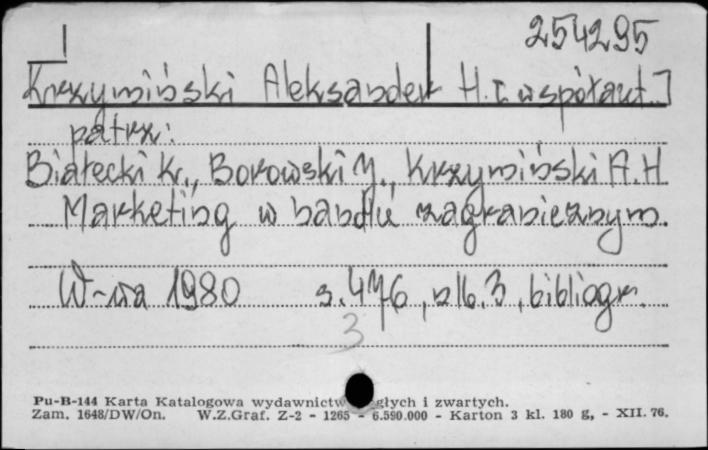 254295
Krzymiński Aleksander H. [współaut.]
patrz:
Białecki K., Borowski J., Krzymiński A.H
Marketing w handlu zagranicznym.
W-wa 1980 s. 476, nlb. 3, bibliogr.
3
Pu-B-144 Karta Katalogowa wydawnictw głych i zwartych.
Zam. 1648/DW/On. W.Z.Graf. Z-2 - 1265 - 6.590.000 - Karton 3 kl. 180 g, - XII. 76.